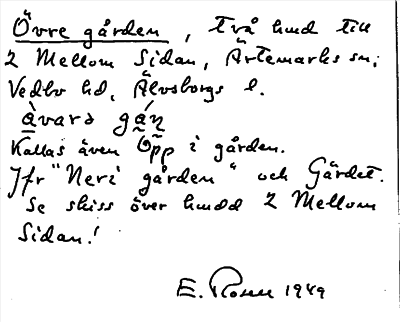 Övre gården, två hmd till
2 Mellom Sidan, Ärtemarks sn,
Vedbo hd, Älvsborgs l.
àvarə gáɳ
Kallas även Opp i gården.
Jfr "Neri gården" och Gärdet.
Se skiss över hmdd 2 Mellom
Sidan!
E. 1949